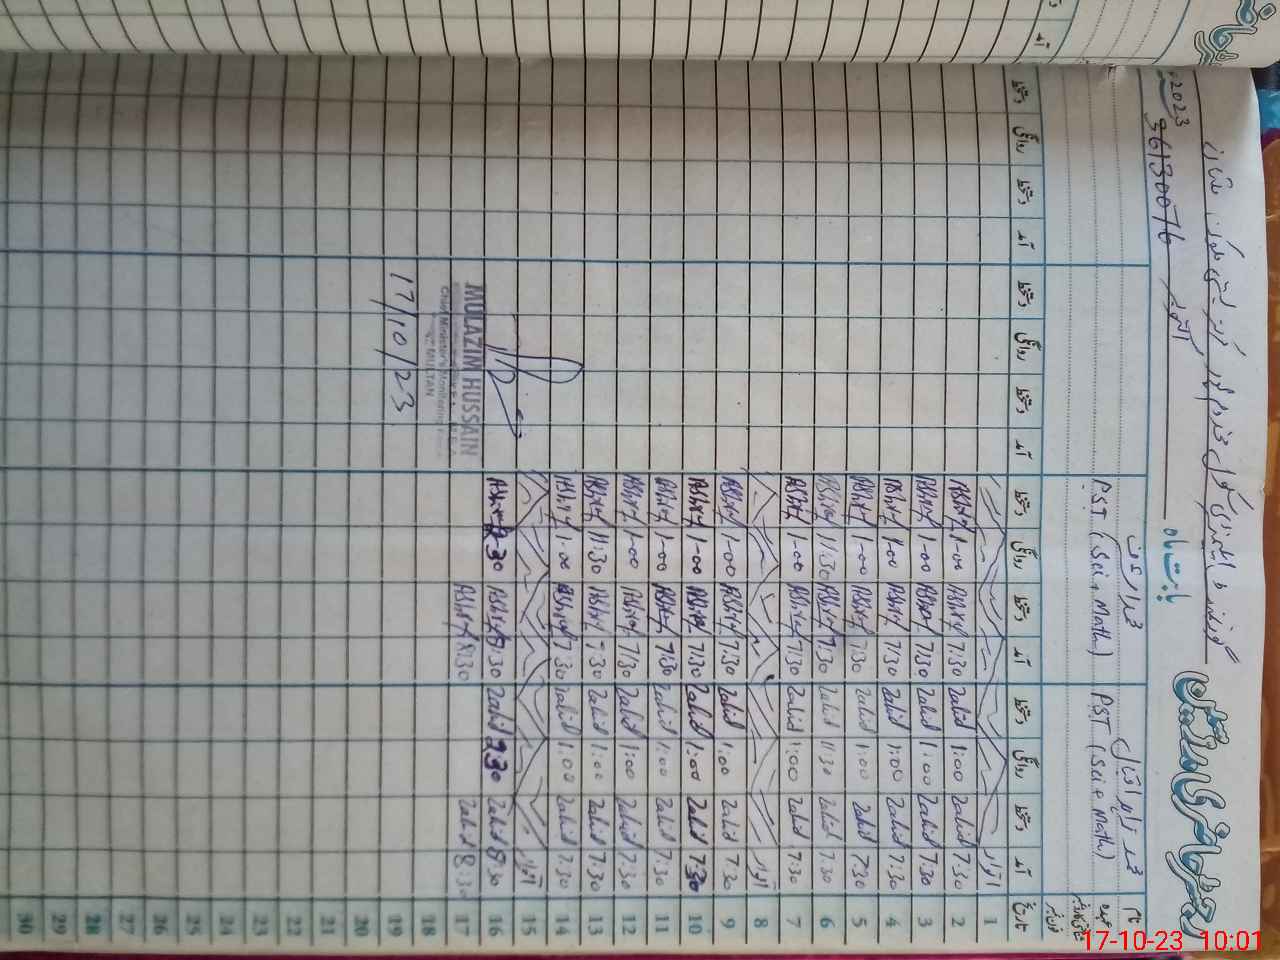 رجسٹر حاضری مدرسین
بابت ماہ
اکتوبر
2023
36130076
نام
محمد زاہد اقبال
عہدہ
PST (Sci + Math)
PST (Sci + Math)
تاریخ آمد دستخط روانگی دستخط آمد دستخط روانگی دستخط آمد دستخط روانگی دستخط آمد دستخط روانگی دستخط
1 اتوار
2 7:30 Zahid 1:00 Zahid 7:30 Ashraf 1-00 Ashraf
3 7:30 Zahid 1:00 Zahid 7:30 Ashraf 1-00 Ashraf
4 7:30 Zahid 1:00 Zahid 7:30 Ashraf 1-00 Ashraf
5 7:30 Zahid 1:00 Zahid 7:30 Ashraf 1-00 Ashraf
6 7:30 Zahid 11:30 Zahid 7:30 Ashraf 11:30 Ashraf
7 7:30 Zahid 1:00 Zahid 7:30 Ashraf 1-00 Ashraf
8 اتوار
9 7:30 Zahid 1:00 Zahid 7:30 Ashraf 1-00 Ashraf
10 7:30 Zahid 1:00 Zahid 7:30 Ashraf 1-00 Ashraf
11 7:30 Zahid 1:00 Zahid 7:30 Ashraf 1-00 Ashraf
12 7:30 Zahid 1:00 Zahid 7/30 Ashraf 1-00 Ashraf
13 7:30 Zahid 1:00 Zahid 7:30 Ashraf 11:30 Ashraf
14 7:30 Zahid 1:00 Zahid 7:30 Ashraf 1-00 Ashraf
15 اتوار
16 8:30 Zahid 2:30 Zahid 8:30 Ashraf 2-30 Ashraf
17 8:30 Zahid 8:30 Ashraf
18
19
20
21
22
23
24
25
26
27
28
29
30
MULAZIM HUSSAIN
Chief Minister's Monitoring Force
MULTAN
17/10/23
17-10-23 10:01